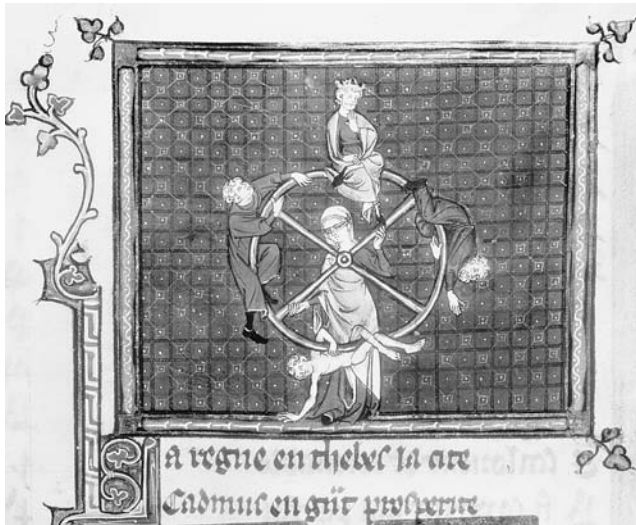 Ja regne en thebes la cite
Cadmus en gñt prosperite